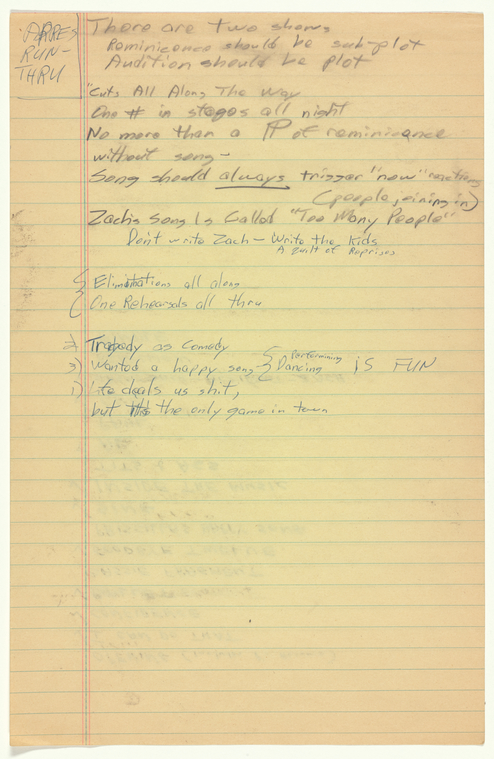 PAPRES
RUN-
THRU
There are two shows
Reminicence should be sub-plot
Audition should be plot
"Cuts All Along The Way
One # in stages all night
No more than a P of reminicence
without song -
Song should always trigger "now" reactions
(people joining in)
Zachs Song Is Called "Too Many People"
Don't write Zach - Write the Kids
A Quilt of Reprises
Eliminations all along
One Rehearsals all thru
2) Tragedy as Comedy
3) Wanted a happy song { Performing
Dancing } iS FUN
1) Life deals us shit,
but it's the only game in town